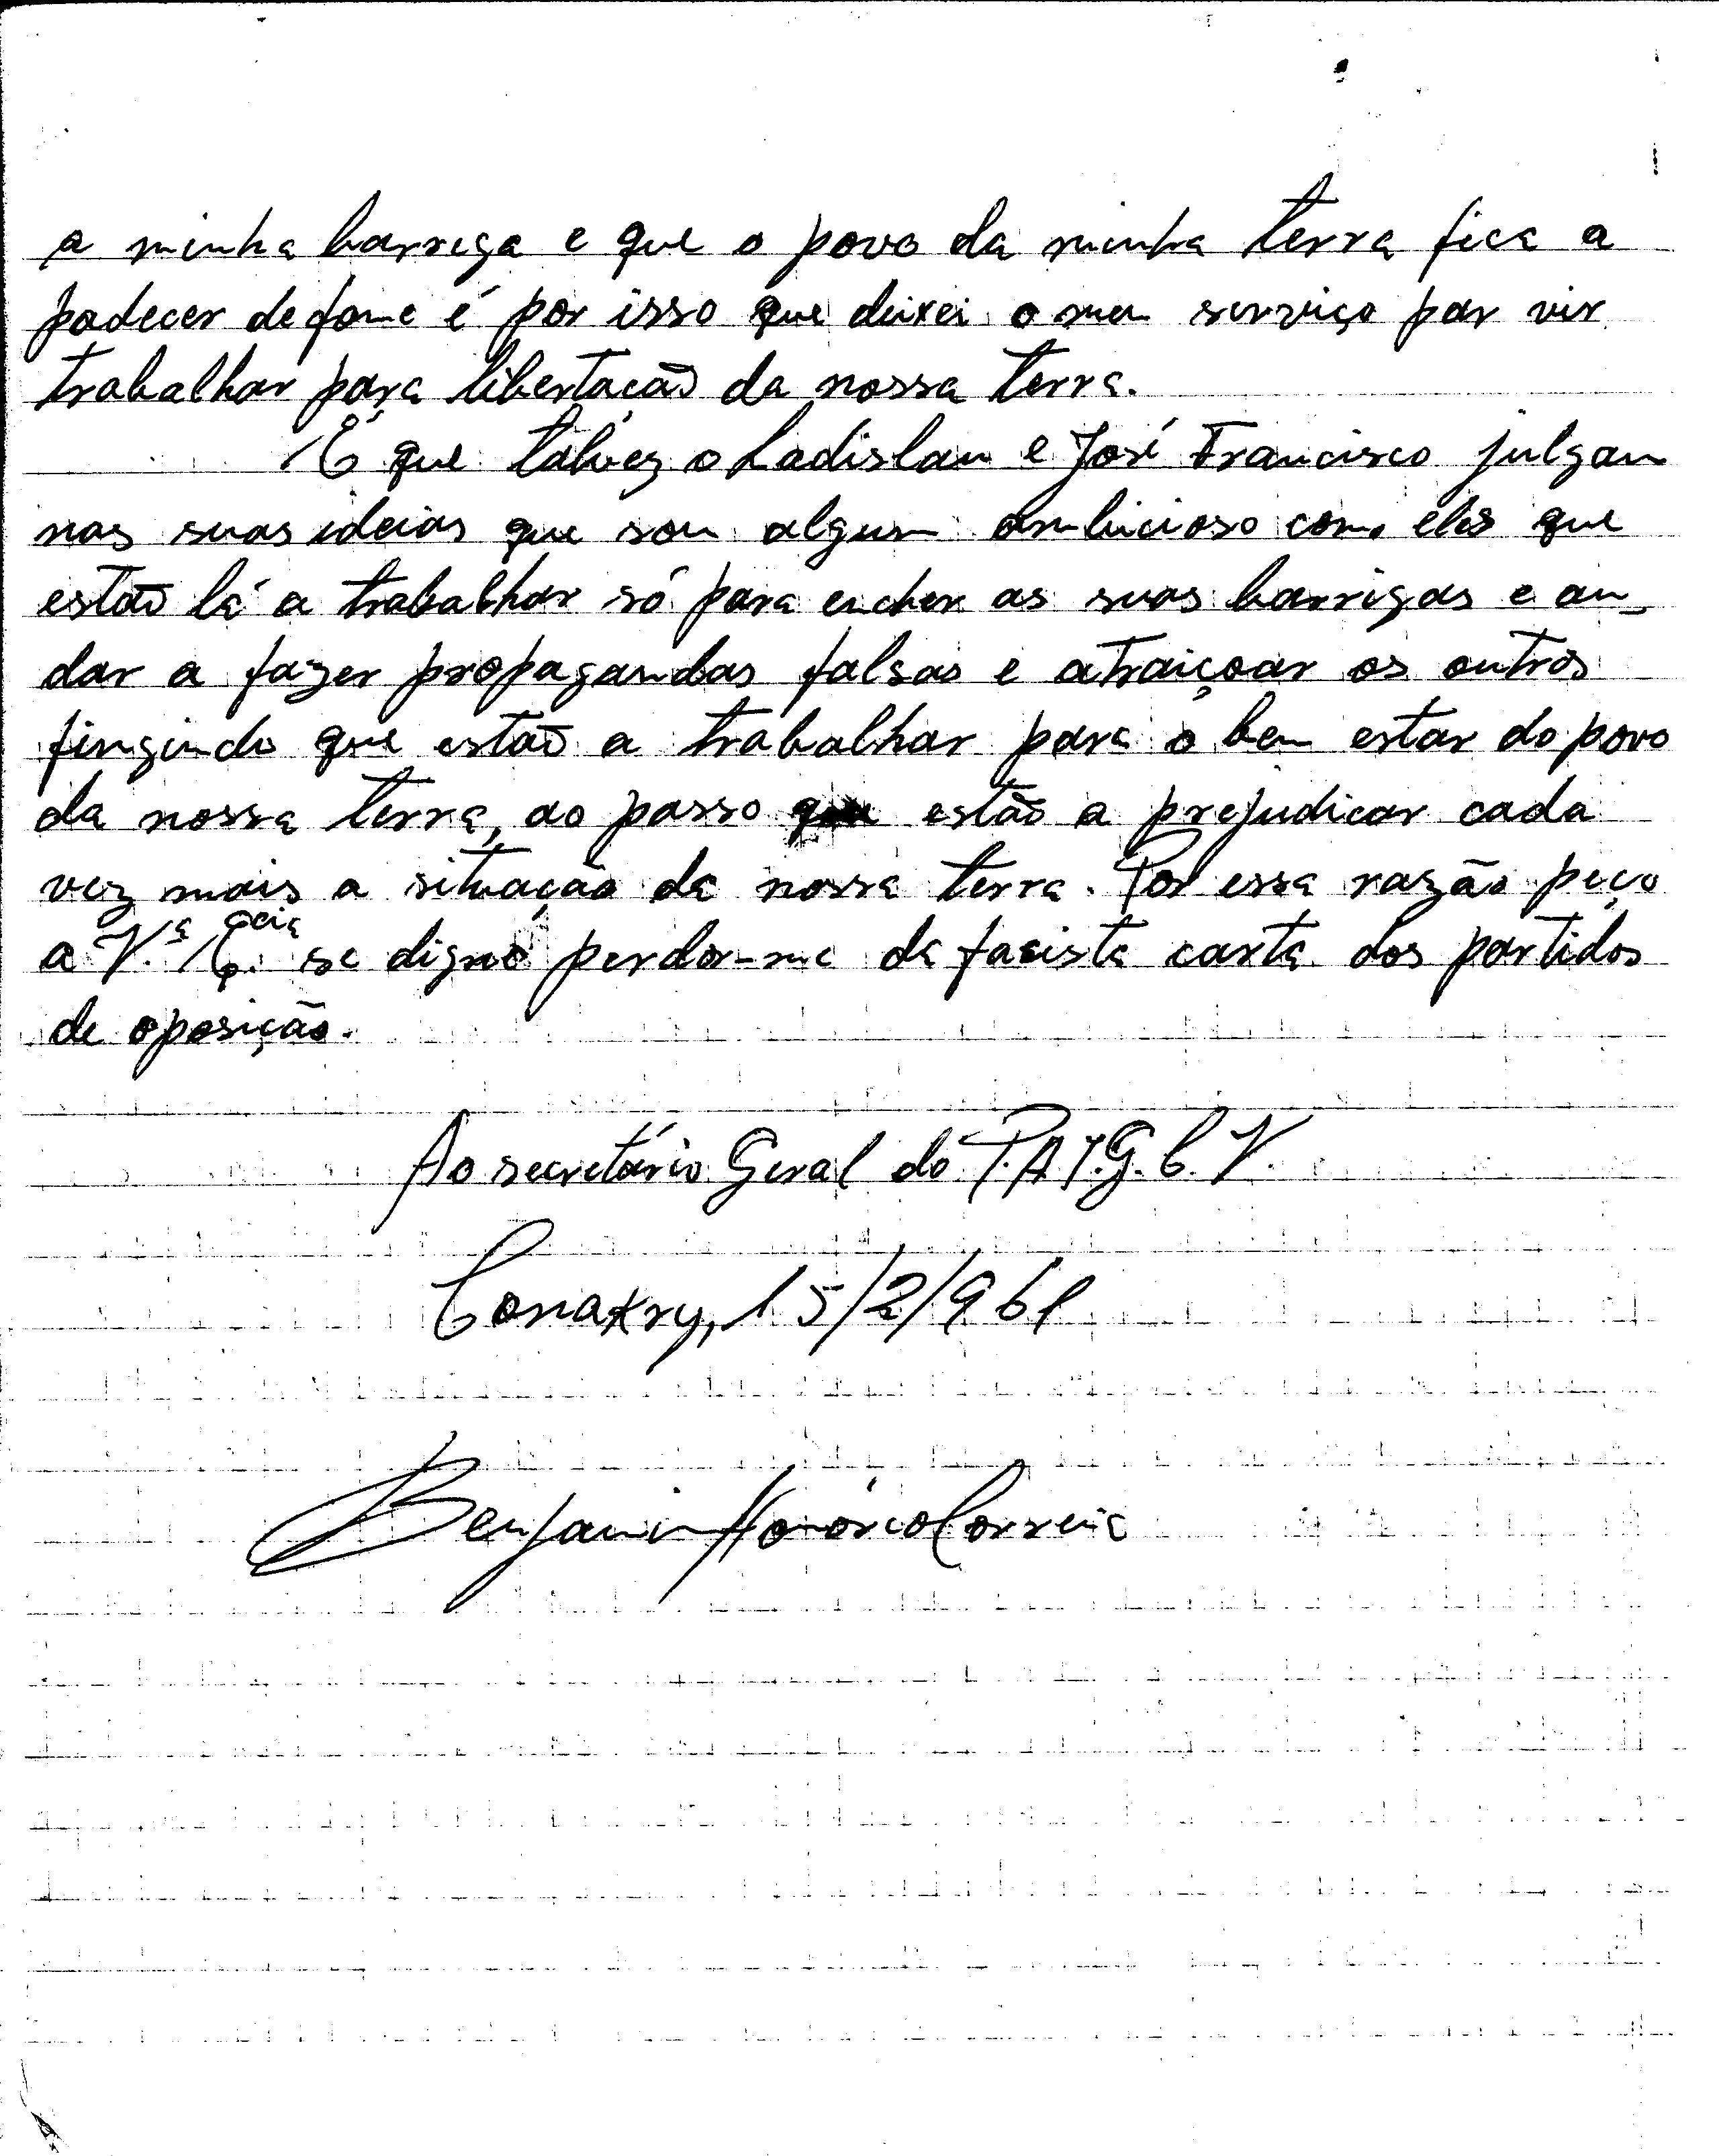 a minha barriga e que o povo da minha terra fica a
padecer de fome é por isso que deixei o meu serviço par vir
trabalhar para libertação da nossa terra.
É que talvez o Ladislau e José Francisco julgam
nas suas ideias que sou algum ambicioso como eles que
estão lá a trabalhar só para encher as suas barrigas e an_
dar a fazer propagandas falsas e atraiçoar os outros
fingindo que estão a trabalhar para o bem estar do povo
da nossa terra, ao passo que estão a prejudicar cada
vez mais a situação da nossa terra. Por essa razão peço
a V.ª E. cia se digne perdor-me da facista carta dos partidos
de oposição.
Ao secretário Geral do P.A.I.G.C.V.
Conakry, 15/2/961
Benjamin Honório Correia